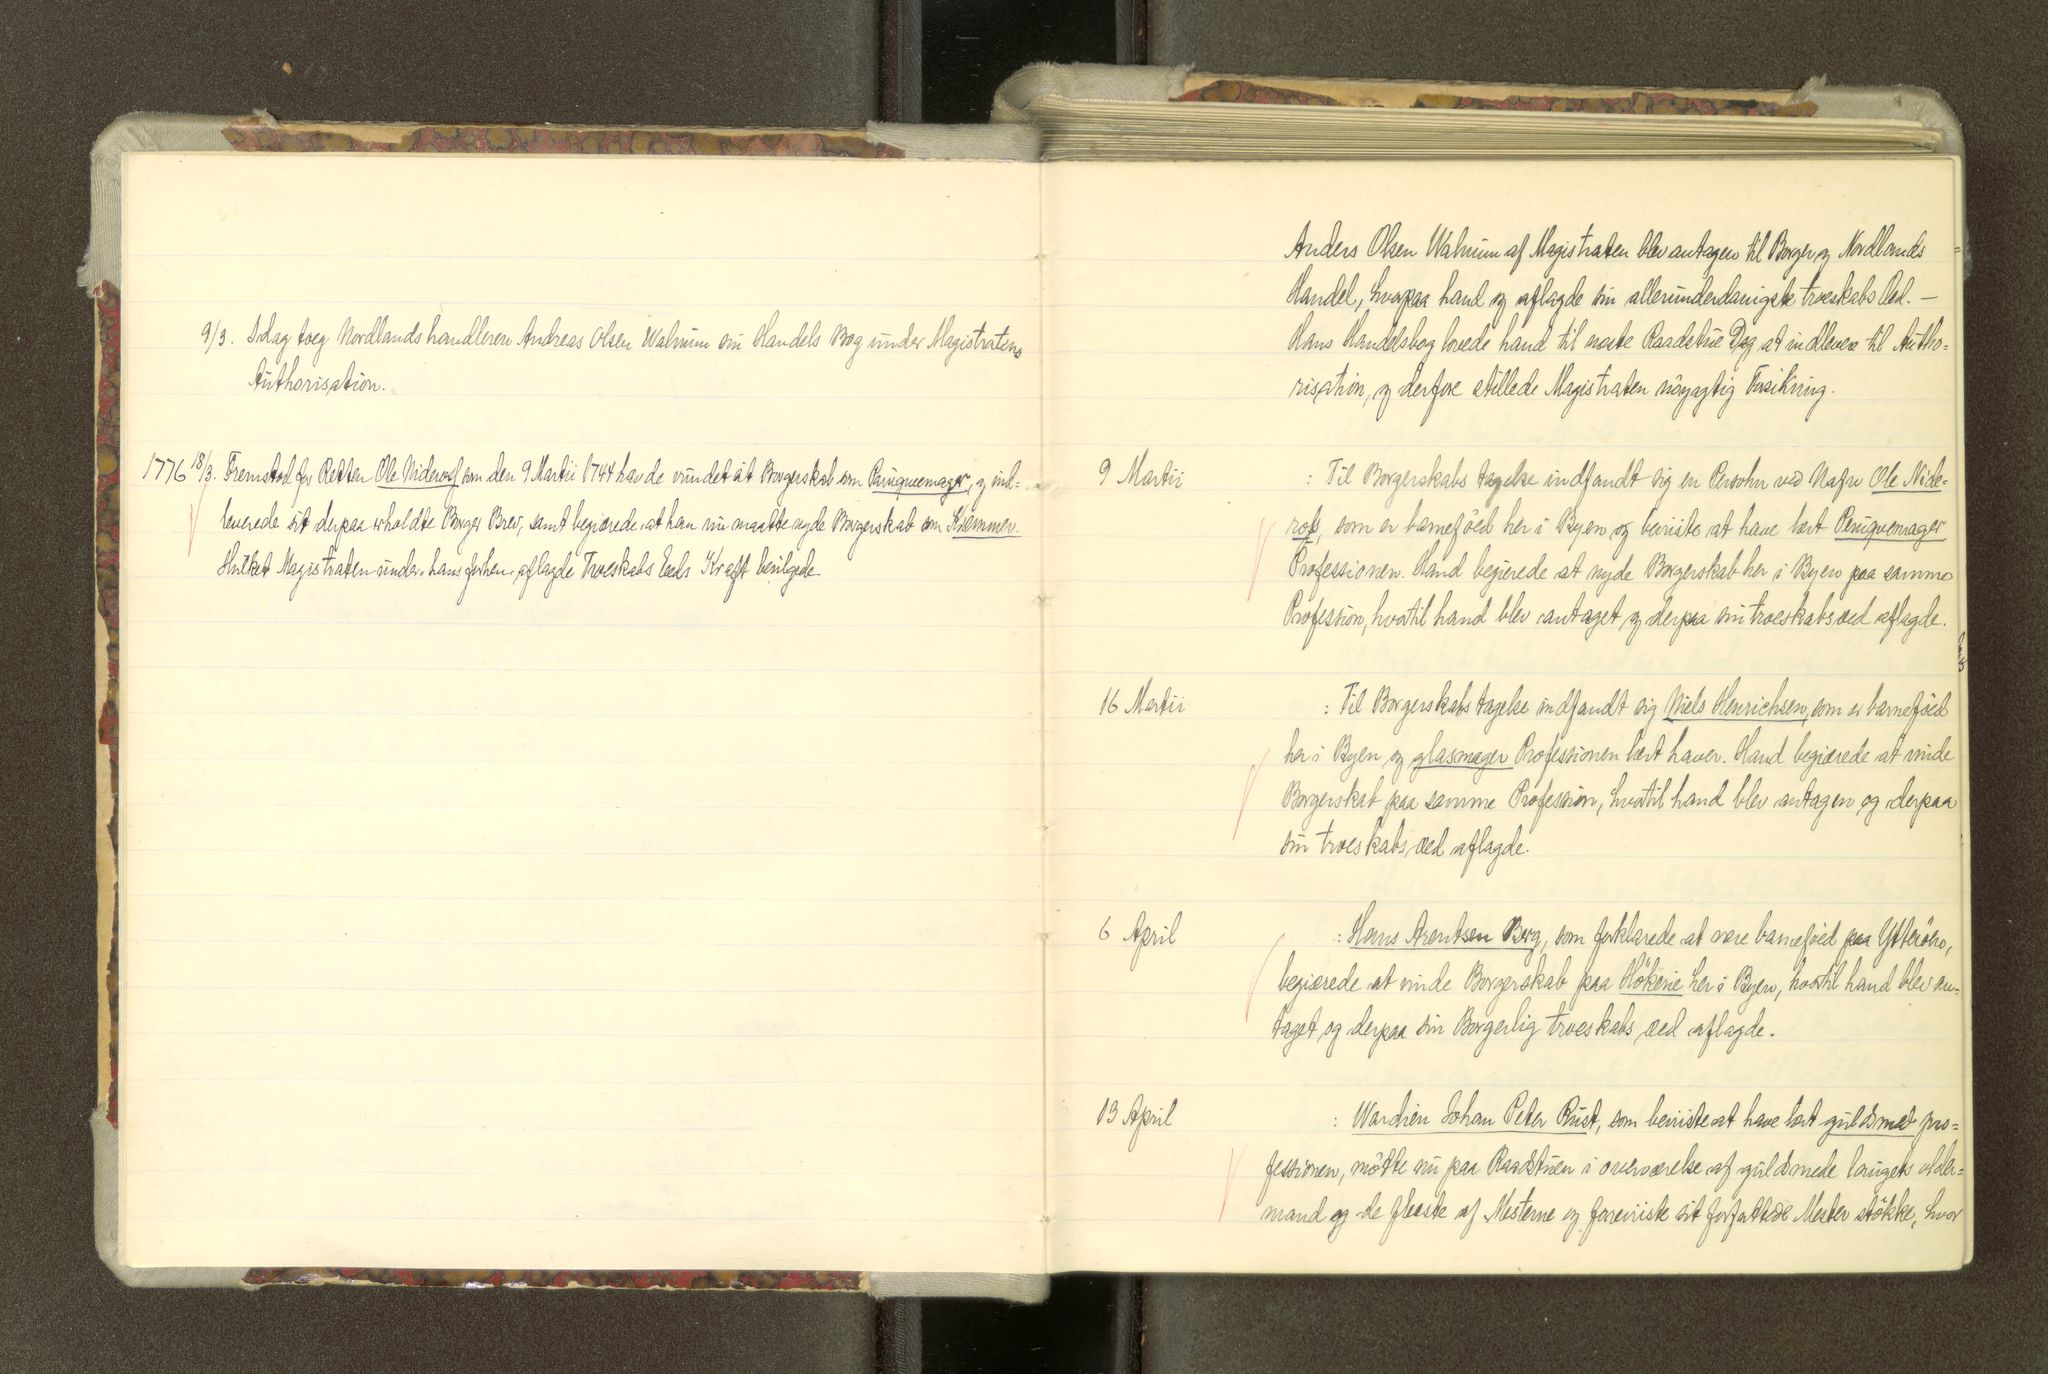 9/3. Idag tog Nordlandshandleren Andreas Olsen Walnum sin Handels Bog under Magistratens
Authorisation.
1776 18/3. Fremstod for Retten Ole Niderosf som den 9 Martii 1744 havde vundet át Borgerskab som Paruquemager, og ind-
leverede sit derpaa erholdte Borger Brev, samt begierede at han nu maatte nyde Borgerskab som Kræmmer.
Hvilket Magistraten under hans forhen aflagde Troeskabs Eeds Krafft bevilgede
Anders Olsen Walnum af Magistraten blev antagen til Borger og Nordlands
Handel, hvorpaa hand og aflagde sin allerunderdanigste troeskabs Eed. —
Hans Handelsbog lovede hand til neste Raadstue Dag at indlevere til Autho-
risation, og derfore stillede Magistraten nöyagtig Forsikring.
9 Martii : Til Borgerskabs tagelse indfandt sig en Persohn ved Nafn Ole Nide-
rofs, som er barneföed her i Byen og beviiste at have lært Peruqvemager
Professionen. Hand begierede at nyde Borgerskab her i Byen paa samme
Profession, hvortil hand blev antaget og derpaa sin troeskabs æed aflagde.
16 Martii : Til Borgerskabs tagelse indfandt sig Niels Henrichsen, som er barneföed
her i Byen og glasmager Professionen lært haver. Hand begierede at vinde
Borgerskab paa samme Profession, hvortil hand blev antagen og derpaa
sin troeskabs æed aflagde.
6 April : Hans Arentsen Berg, som forklarede at være barneföed paa Ytteröen,
begierede at vinde Borgerskab paa Hökerie her i Byen, hvortil hand blev an-
taget og derpaa sin Borgerlig troeskabs æed aflagde.
13 April : Wardien Johan Peter Rust, som beviiste at have lært guldsmed pro-
fessionen, mötte nu paa Raadstuen i overværelse af guldsmede laugets older-
mand og de fleeste af Mesterne og foreviiste sit forfattede Mester stökke, hvor